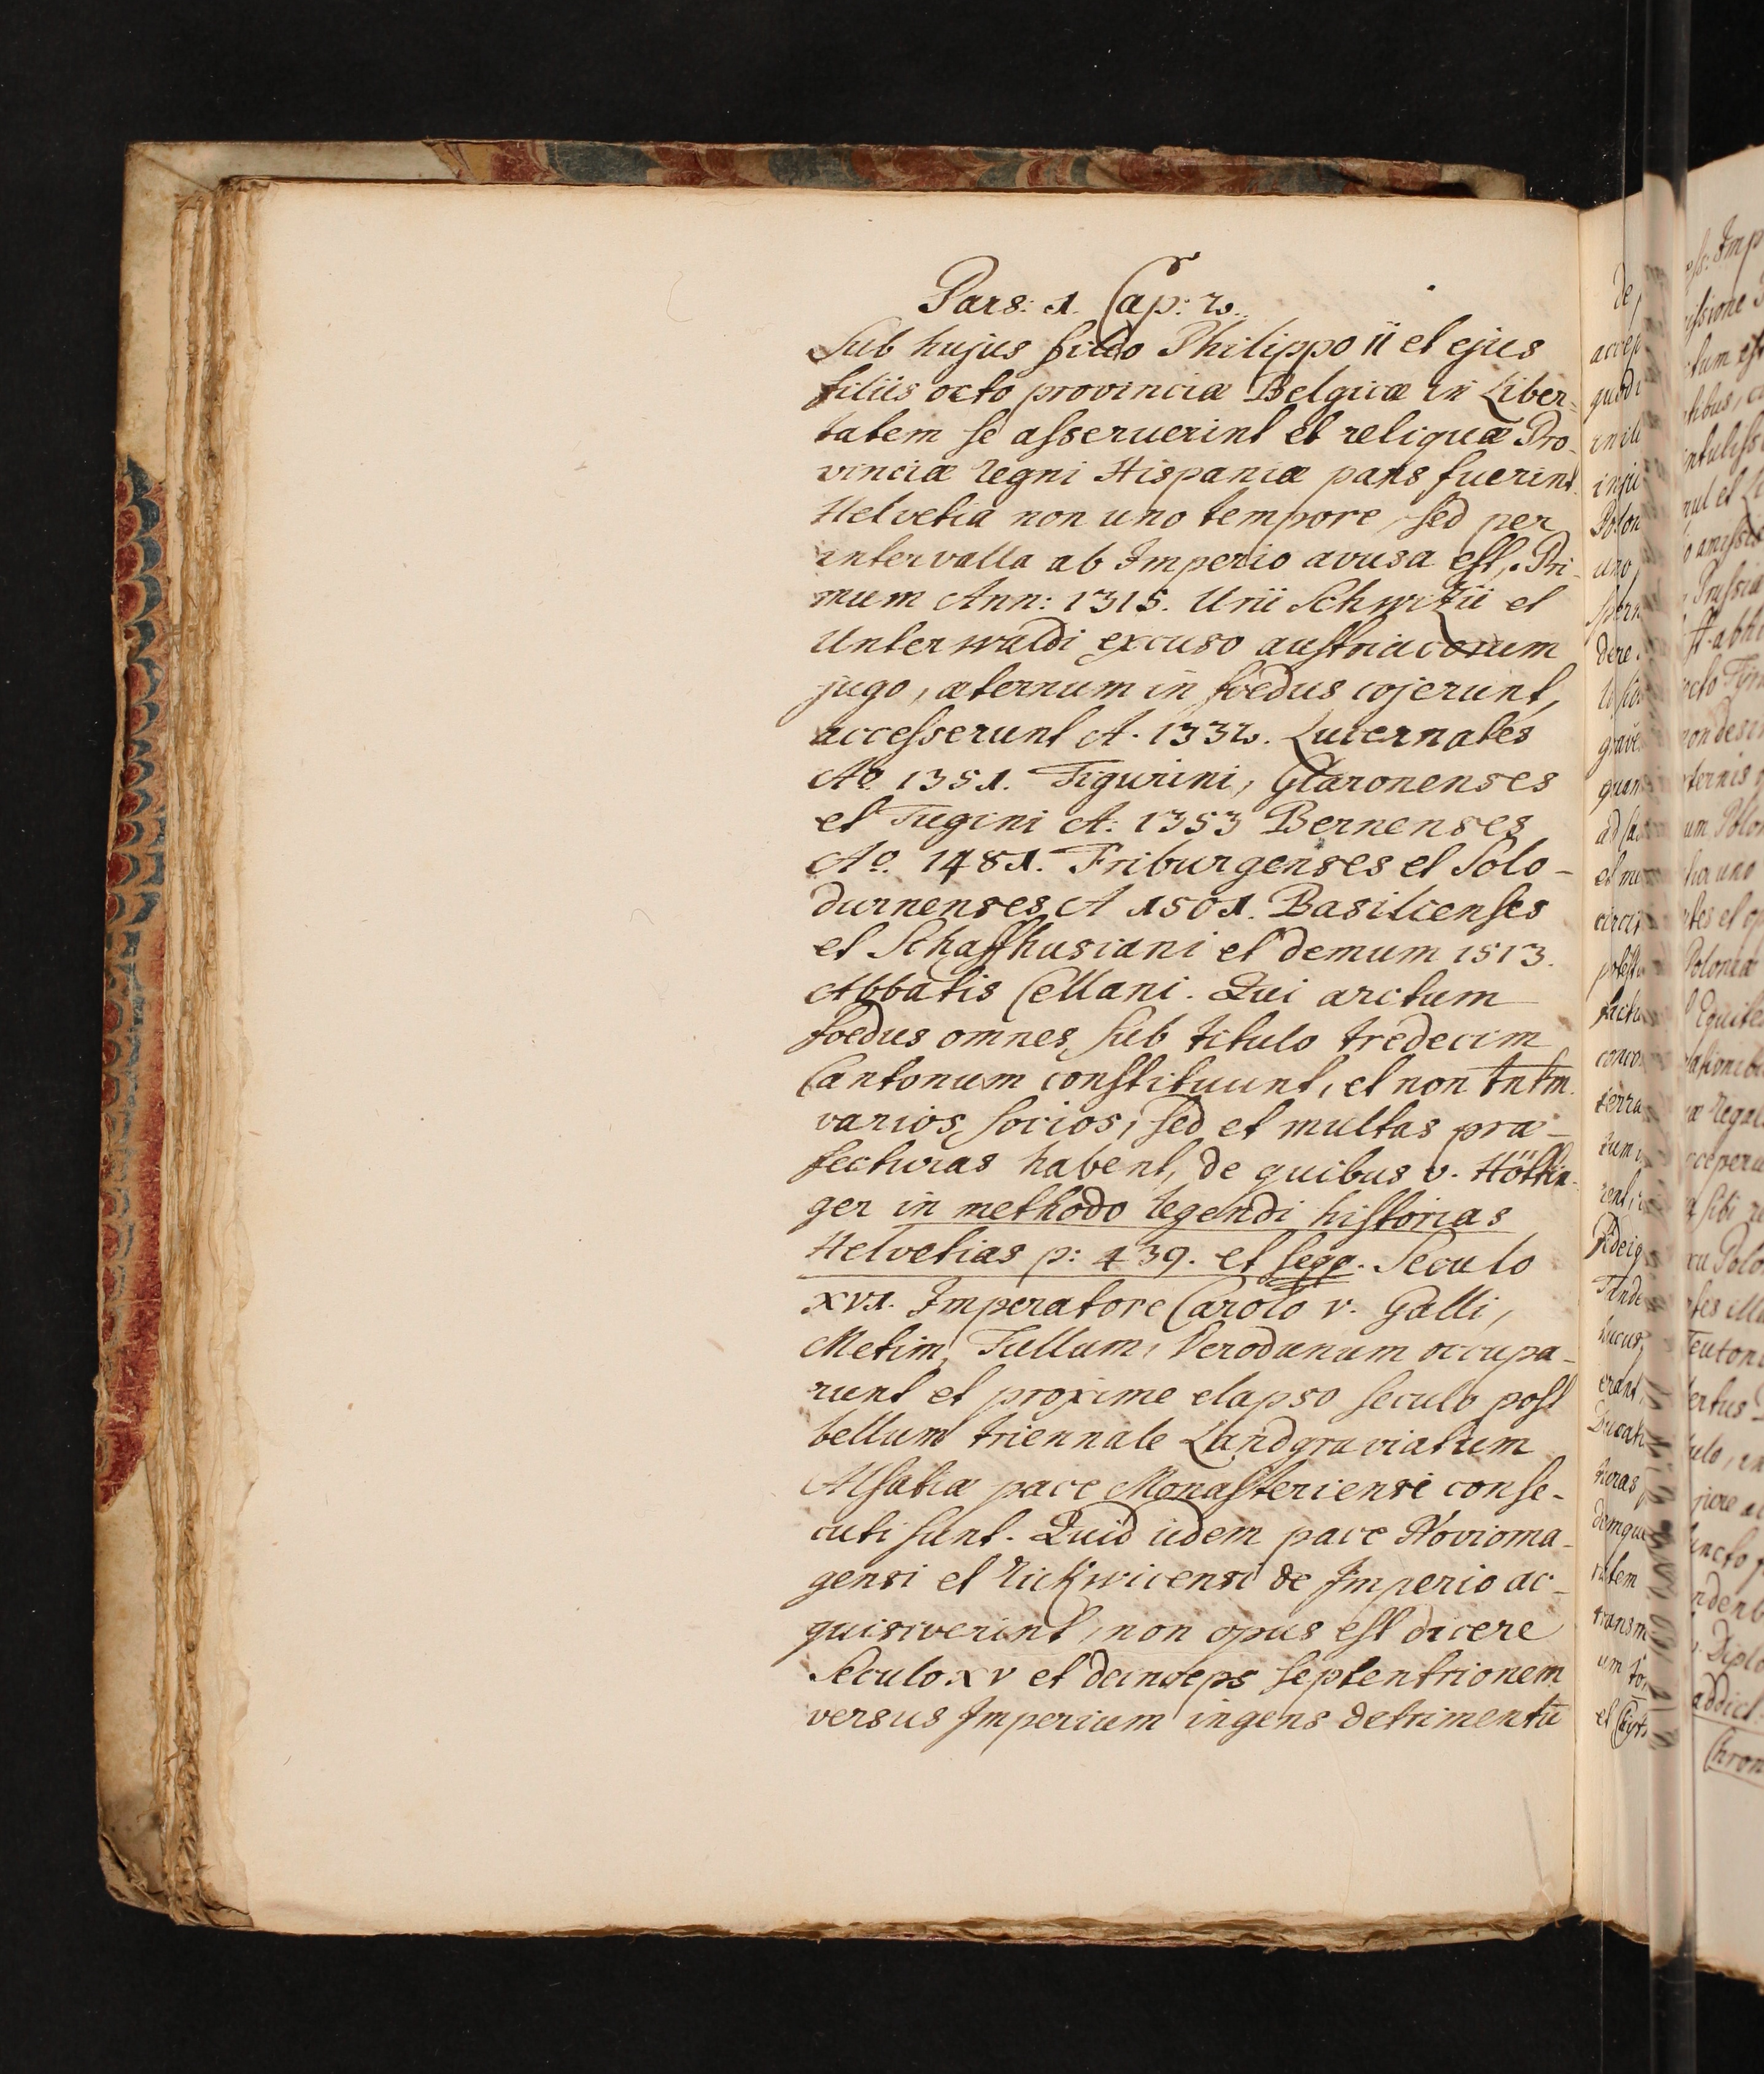 Pars: 1. Cap: 2.
Sub hujus filio Philippo ii et ejus
filiis octo provinciæ Belgicæ in Liber-
tatem se asseruerint et reliquæ Pro-
vinciæ regni Hispaniæ pars fuerint.
Helvetia non uno tempore, sed per
intervalla ab Imperio avusa est, Pri-
mum Ann: 1315. Urii Schwitzii et
Unterwaldi excuso austriacorum
jugo, æternum in foedus cojerunt,
accesserunt A. 1332. Lucernates
Ao 1351. Tigurini, Glaronenses
et Tugini A: 1353 Bernenses
Ao. 1481. Friburgenses et Solo-
durnenses A 1501. Basileenses
et Schaffhusiani et demum 1513.
Abbatis Cellani. Qui arctum
foedus omnes sub titulo tredecim
Cantonum constituunt, et non tntm.
varios socios, sed et multas præ-
fecturas habent, de quibus v. Höttin-
ger in methodo legendi historias
Helvetias p: 439. et seqq. Seculo
XVI. Imperatore Carolo v. Galli,
Metim, Tullum, Verodunum occupa-
runt et proxime elapso seculo post
bellum triennale Landgraviatum
Alsatiæ pace Monasteriensi conse-
cuti sunt. Quid iidem pace Novioma-
gensi et Rickwicensi de Imperio ac-
quisiverint, non opus est dicere
Seculo XV et deinceps septentrionem
versus Imperium ingens detrimentū